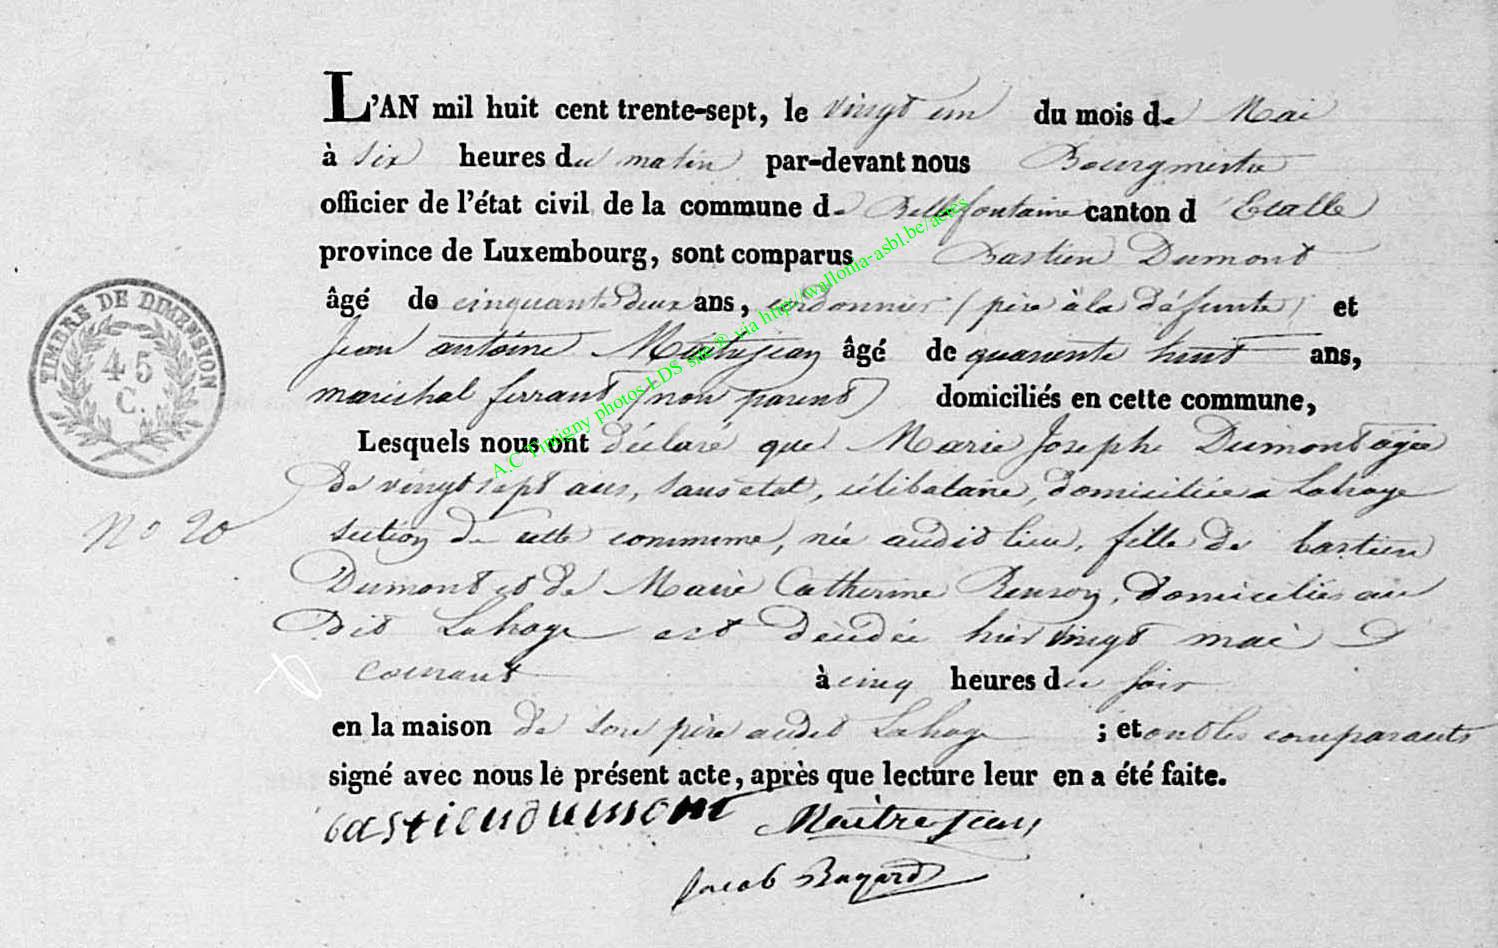 L'AN mil huit cent trente-sept, le vingt un du mois de Mai
à six heures du matin par-devant nous Bourgmestre
officier de l'état civil de la commune de Bellefontaine canton d'Etalle
province de Luxembourg, sont comparus Bastien Dumont
âgé de cinquante deux ans, cordonnier (père à la défunte) et
Jean antoine Maitrejean âgé de quarante huit ans,
maréchal ferrant (non parent) domiciliés en cette commune,
Lesquels nous ont déclaré que Marie Josephe Dumont agée
de vingt sept ans, sans etat, célibataire, domiciliée a Lahage
section de cette commune, née audit lieu, fille de bastien
Dumont et de Marie Catherine Renson, domiciliés au
dit Lahage est décédée hier vingt mai
courant à cinq heures du soir
en la maison de son père audit Lahage ; et ont les comparants
signé avec nous le présent acte, après que lecture leur en a été faite.
bastien dumont Maitrejean
Jacob Bayard
TIMBRE DE DIMENSION
45
C.
No 20
A.C Tintigny photos LDS sur ® via http://wallonia-asbl.be/actes